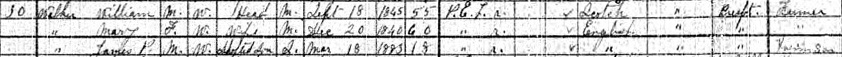 30 Wilker William M. W. Head M. Sept 18 1845 55 P.E.I. r. ✓ Scotch " Bapt. Farmer
" Mary F. W. Wife M. Dec 20 1840 60 " r. ✓ English " " "
" James P. M. W. S. Mar 18 1883 18 " r. ✓ " " "